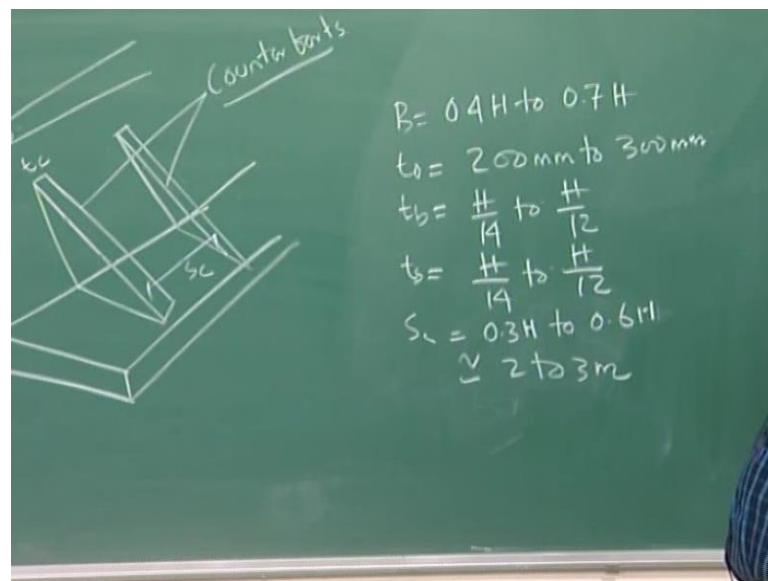 Counterborts
tc
Sc
B = 0.4H to 0.7H
t0 = 200mm to 300mm
tb = H/14 to H/12
ts = H/14 to H/12
Sc = 0.3H to 0.6H
≃ 2 to 3m